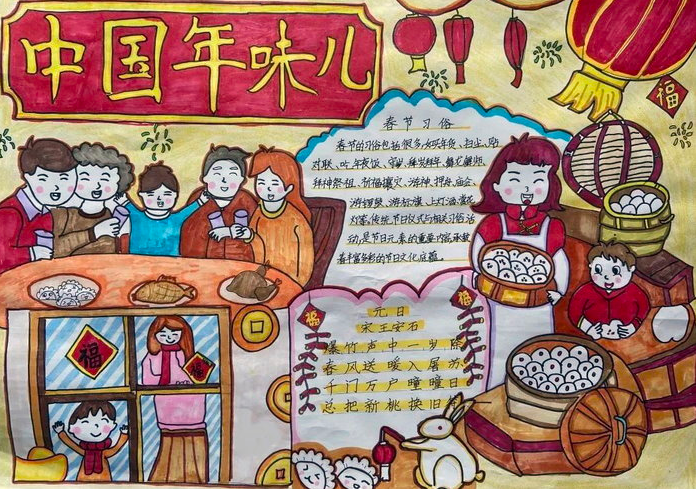 中国年味儿
福
春节习俗
春节的习俗包括很多,如买年货、扫尘、贴
对联、吃年夜饭、守岁、拜岁拜年、舞龙舞狮、
拜神祭祖、祈福攘灾、游神、押舟、庙会、
游锣鼓、游标旗、上灯酒、赏花
灯等,传统节日仪式与相关习俗活
动,是节日元素的重要内容,承载
着丰富多彩的节日文化底蕴。
福
福
元日
宋王安石
爆竹声中一岁除
春风送暖入屠苏
千门万户曈曈日
总把新桃换旧
福
福